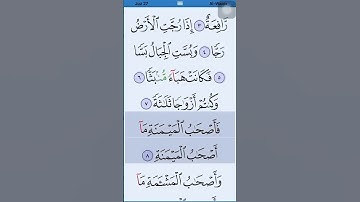 Juz 27
رَّافِعَةٌ ٣ إِذَا رُجَّتِ ٱلْأَرْضُ
رَجًّا ٤ وَبُسَّتِ ٱلْجِبَالُ بَسًّا
٥ فَكَانَتْ هَبَآءً مُّنۢبَثًّا ٦
وَكُنتُمْ أَزْوَٰجًا ثَلَٰثَةً ٧
فَأَصْحَٰبُ ٱلْمَيْمَنَةِ مَآ
أَصْحَٰبُ ٱلْمَيْمَنَةِ ٨
وَأَصْحَٰبُ ٱلْمَشْـَٔمَةِ مَآ